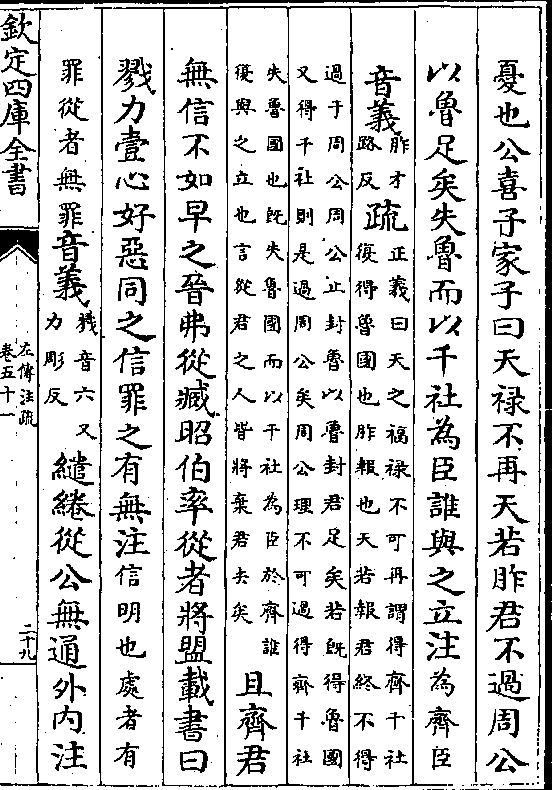 憂也公喜子家子曰天禄不再天若胙君不過周公
以魯足矣失魯而以千社為臣誰與之立注為齊臣
音義
胙才
路反
疏
正義曰天之福禄不可再謂得齊千社
復得魯國也胙報也天若報君終不得
過于周公周公止封魯以魯封君足矣若既得魯國
又得千社則是過周公矣周公理不可過得齊千社
失魯國也既失魯國而以千社為臣於齊誰
復與之立也言從君之人皆將棄君去矣
且齊君
無信不如早之晉弗從臧昭伯率從者將盟載書曰
戮力壹心好惡同之信罪之有無注信明也處者有
罪從者無罪音義
戮音六又
力彫反
繾綣從公無通外内注
欽定四庫全書
左傳注疏
卷五十一
二十九